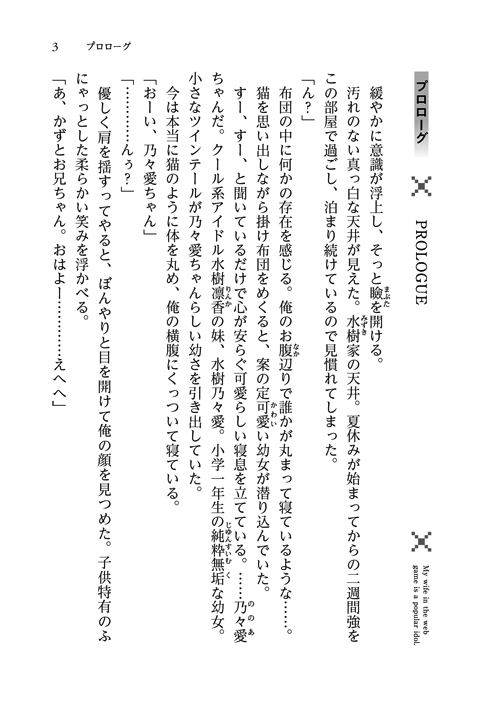 3　プロローグ
プロローグ
PROLOGUE
My wife in the web
game is a popular idol.
緩やかに意識が浮上し、そっと瞼を開ける。
汚れのない真っ白な天井が見えた。水樹家の天井。夏休みが始まってからの二週間強を
この部屋で過ごし、泊まり続けているので見慣れてしまった。
「ん？」
布団の中に何かの存在を感じる。俺のお腹辺りで誰かが丸まって寝ているような……。
猫を思い出しながら掛け布団をめくると、案の定可愛い幼女が潜り込んでいた。
すー、すー、と聞いているだけで心が安らぐ可愛らしい寝息を立てている。……乃々愛
ちゃんだ。クール系アイドル水樹凛香の妹、水樹乃々愛。小学一年生の純粋無垢な幼女。
小さなツインテールが乃々愛ちゃんらしい幼さを引き出していた。
今は本当に猫のように体を丸め、俺の横腹にくっついて寝ている。
「おーい、乃々愛ちゃん」
「…………んぅ？」
優しく肩を揺すってやると、ぼんやりと目を開けて俺の顔を見つめた。子供特有のふ
にゃっとした柔らかい笑みを浮かべる。
「あ、かずとお兄ちゃん。おはよー…………えへへ」